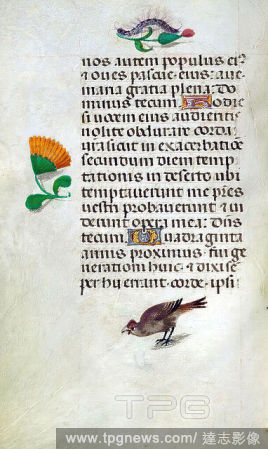 nos autem populus ei⁹
et oves pascue eius: aue
maria gratia plena: Do
minus tecum. Hodie
si uocem eius audieritis
nolite obdurare corda
vra sicut in exacerbatiõe
secundum diem temp
tationis in deserto ubi
temptauerunt me pr̃es
vestri probauerunt et ui
derunt opera mea: Dñs
tecum. Quadraginta
annis proximus fui ge
nerationi huic et dixi se
per hii errant corde ipsi
TPG
www.tpgnews.com/ 達志影像